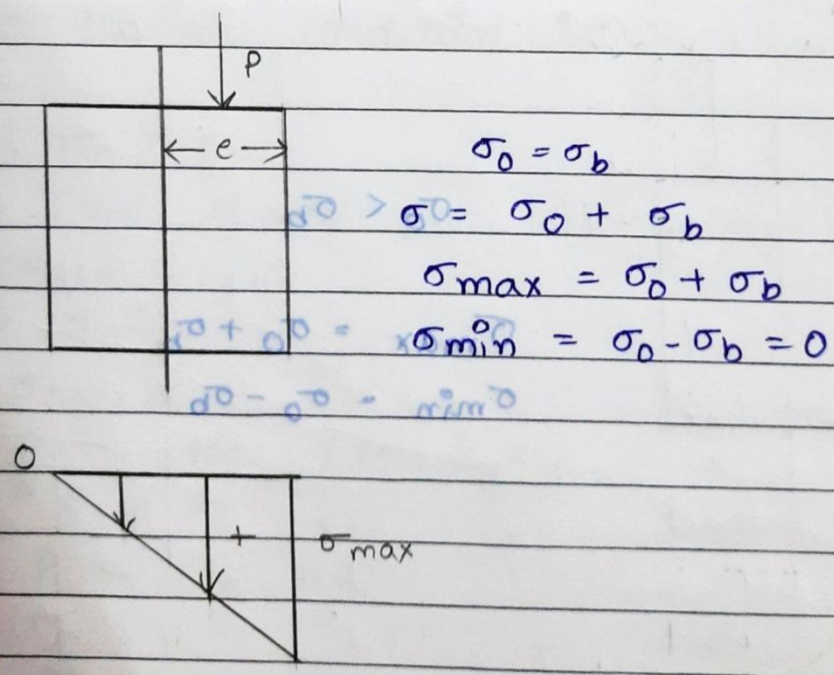 P
e
σ₀ = σb
σ = σ₀ + σb
σmax = σ₀ + σb
σmin = σ₀ - σb = 0
0
+ σmax